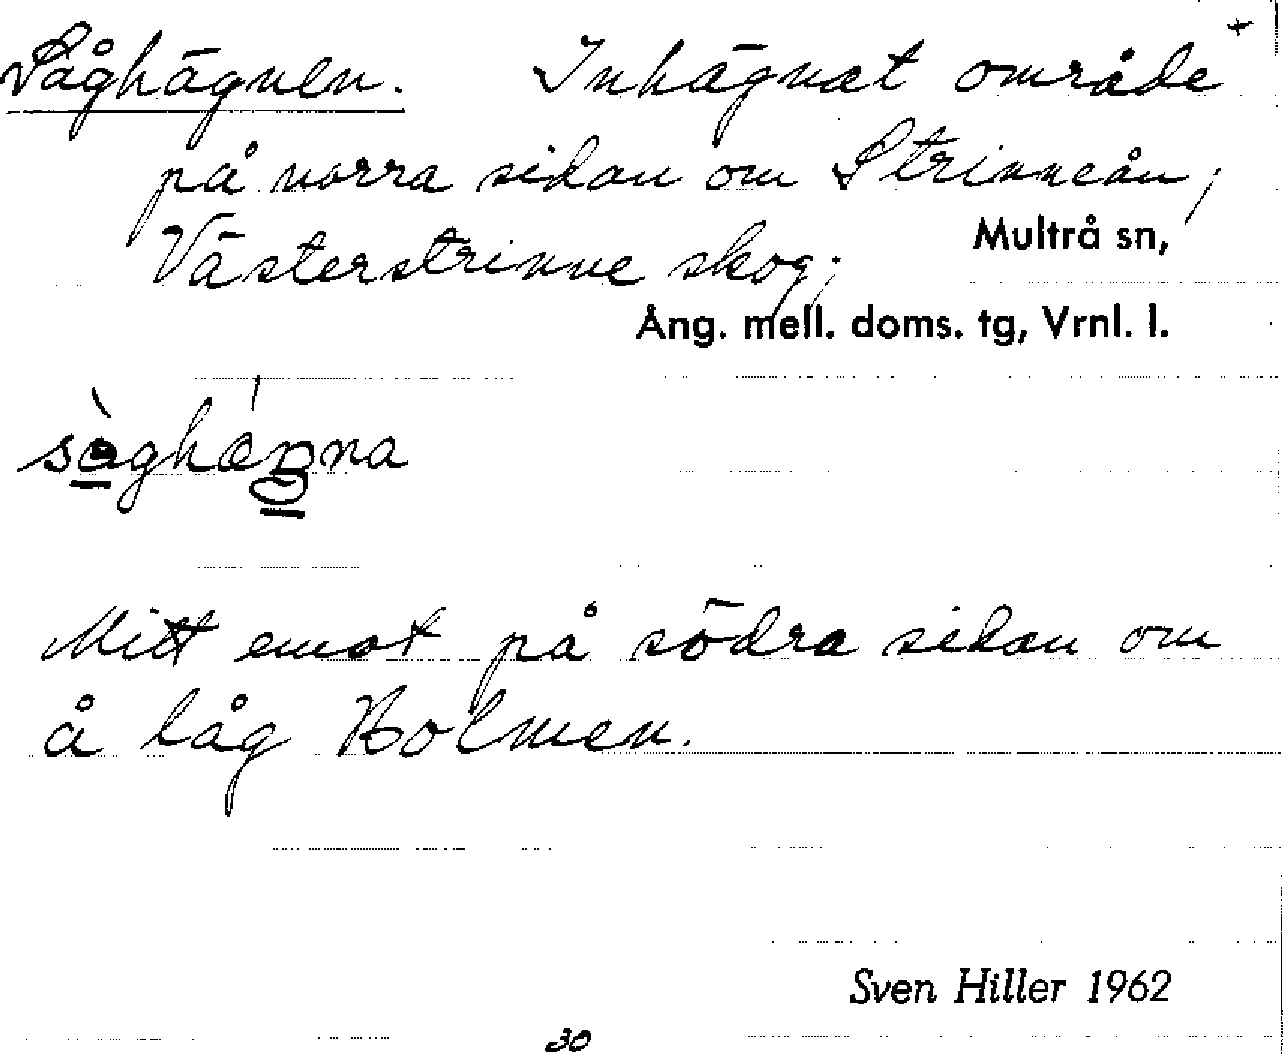 +
Såghägnen. Inhägnat område
på norra sidan om Strinneån,
Västerstrinne skog.
Multrå sn,
Ång. mell. doms. tg, Vrnl. l.
Mitt emot på södra sidan om
å låg Holmen.
Sven Hiller 1962
30